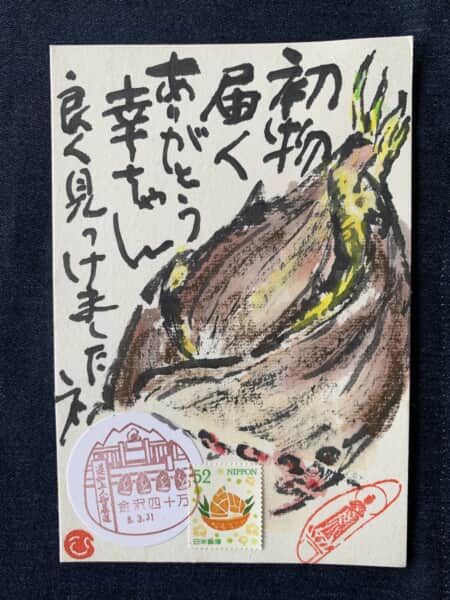 初物
届く
ありがとう
幸ちゃん
良く見つけましたね
金沢四十万
8.3.31
52 NIPPON
日本郵便
ひ